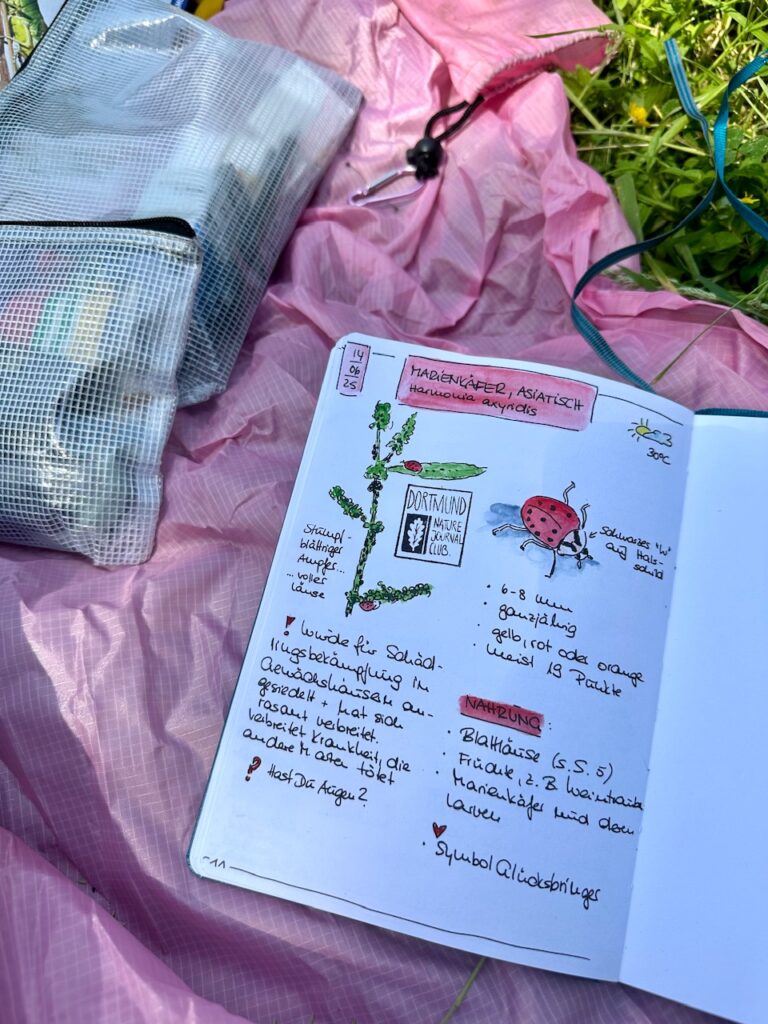 14
06
25
MARIENKÄFER, ASIATISCH
Harmonia axyridis
30°C
DORTMUND
NATURE
JOURNAL
CLUB.
Stumpf-
blättriger
Ampfer...
... voller
Läuse
Schwarzes "W"
auf Hals-
schild
· 6-8 mm
· ganzjährig
· gelb, rot oder orange
· meist 19 Punkte
! Wurde für Schäd-
lingsbekämpfung in
Gewächshäusern an-
gesiedelt + hat sich
rasant verbreitet.
Verbreitet Krankheit, die
andere Arten tötet
? Hast Du Augen?
NAHRUNG:
· Blattläuse (s. S. 5)
· Früchte, z. B. Weintraube
· Marienkäfer und deren
Larven
· Symbol Glücksbringer
11